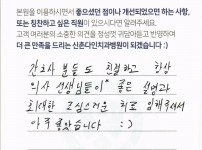 본원을 이용하시면서 좋으셨던 점이나 개선되었으면 하는 사항,
또는 칭찬하고 싶은 직원이 있으시다면 알려주세요.
고객 여러분의 소중한 의견을 정성껏 귀담아듣고 반영하여
더 큰 만족을 드리는 신촌다인치과병원이 되겠습니다 :)
간호사 분들도 친절하고 항상
의사 선생님들이 좋은 설명과
최대한 조심스러운 치료 임해주셔서
아주 좋았습니다 :)